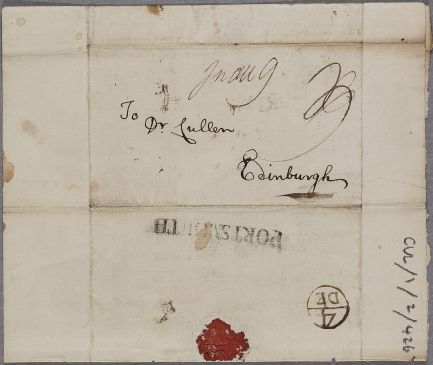 To
Dr. Cullen
Edinburgh
PORTSMOUTH
4
DE
CUL/1/2/426